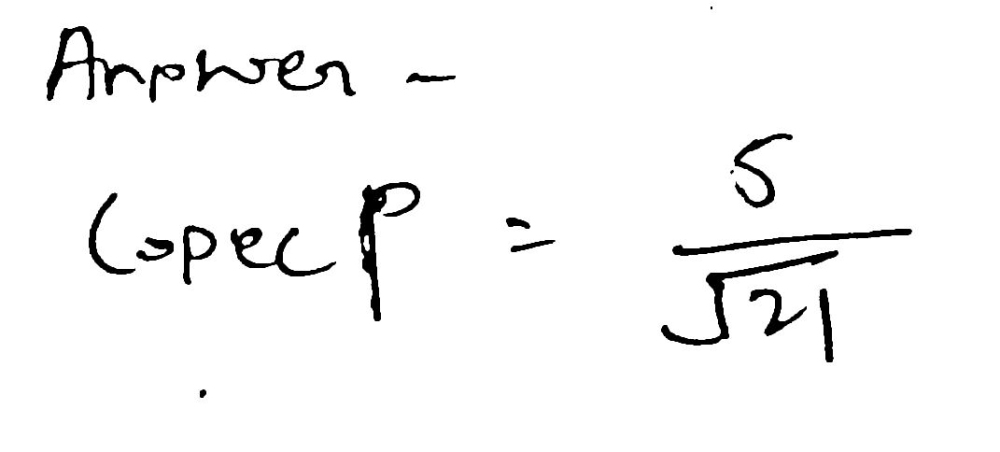 Answer -
Cosec P = 5/√21